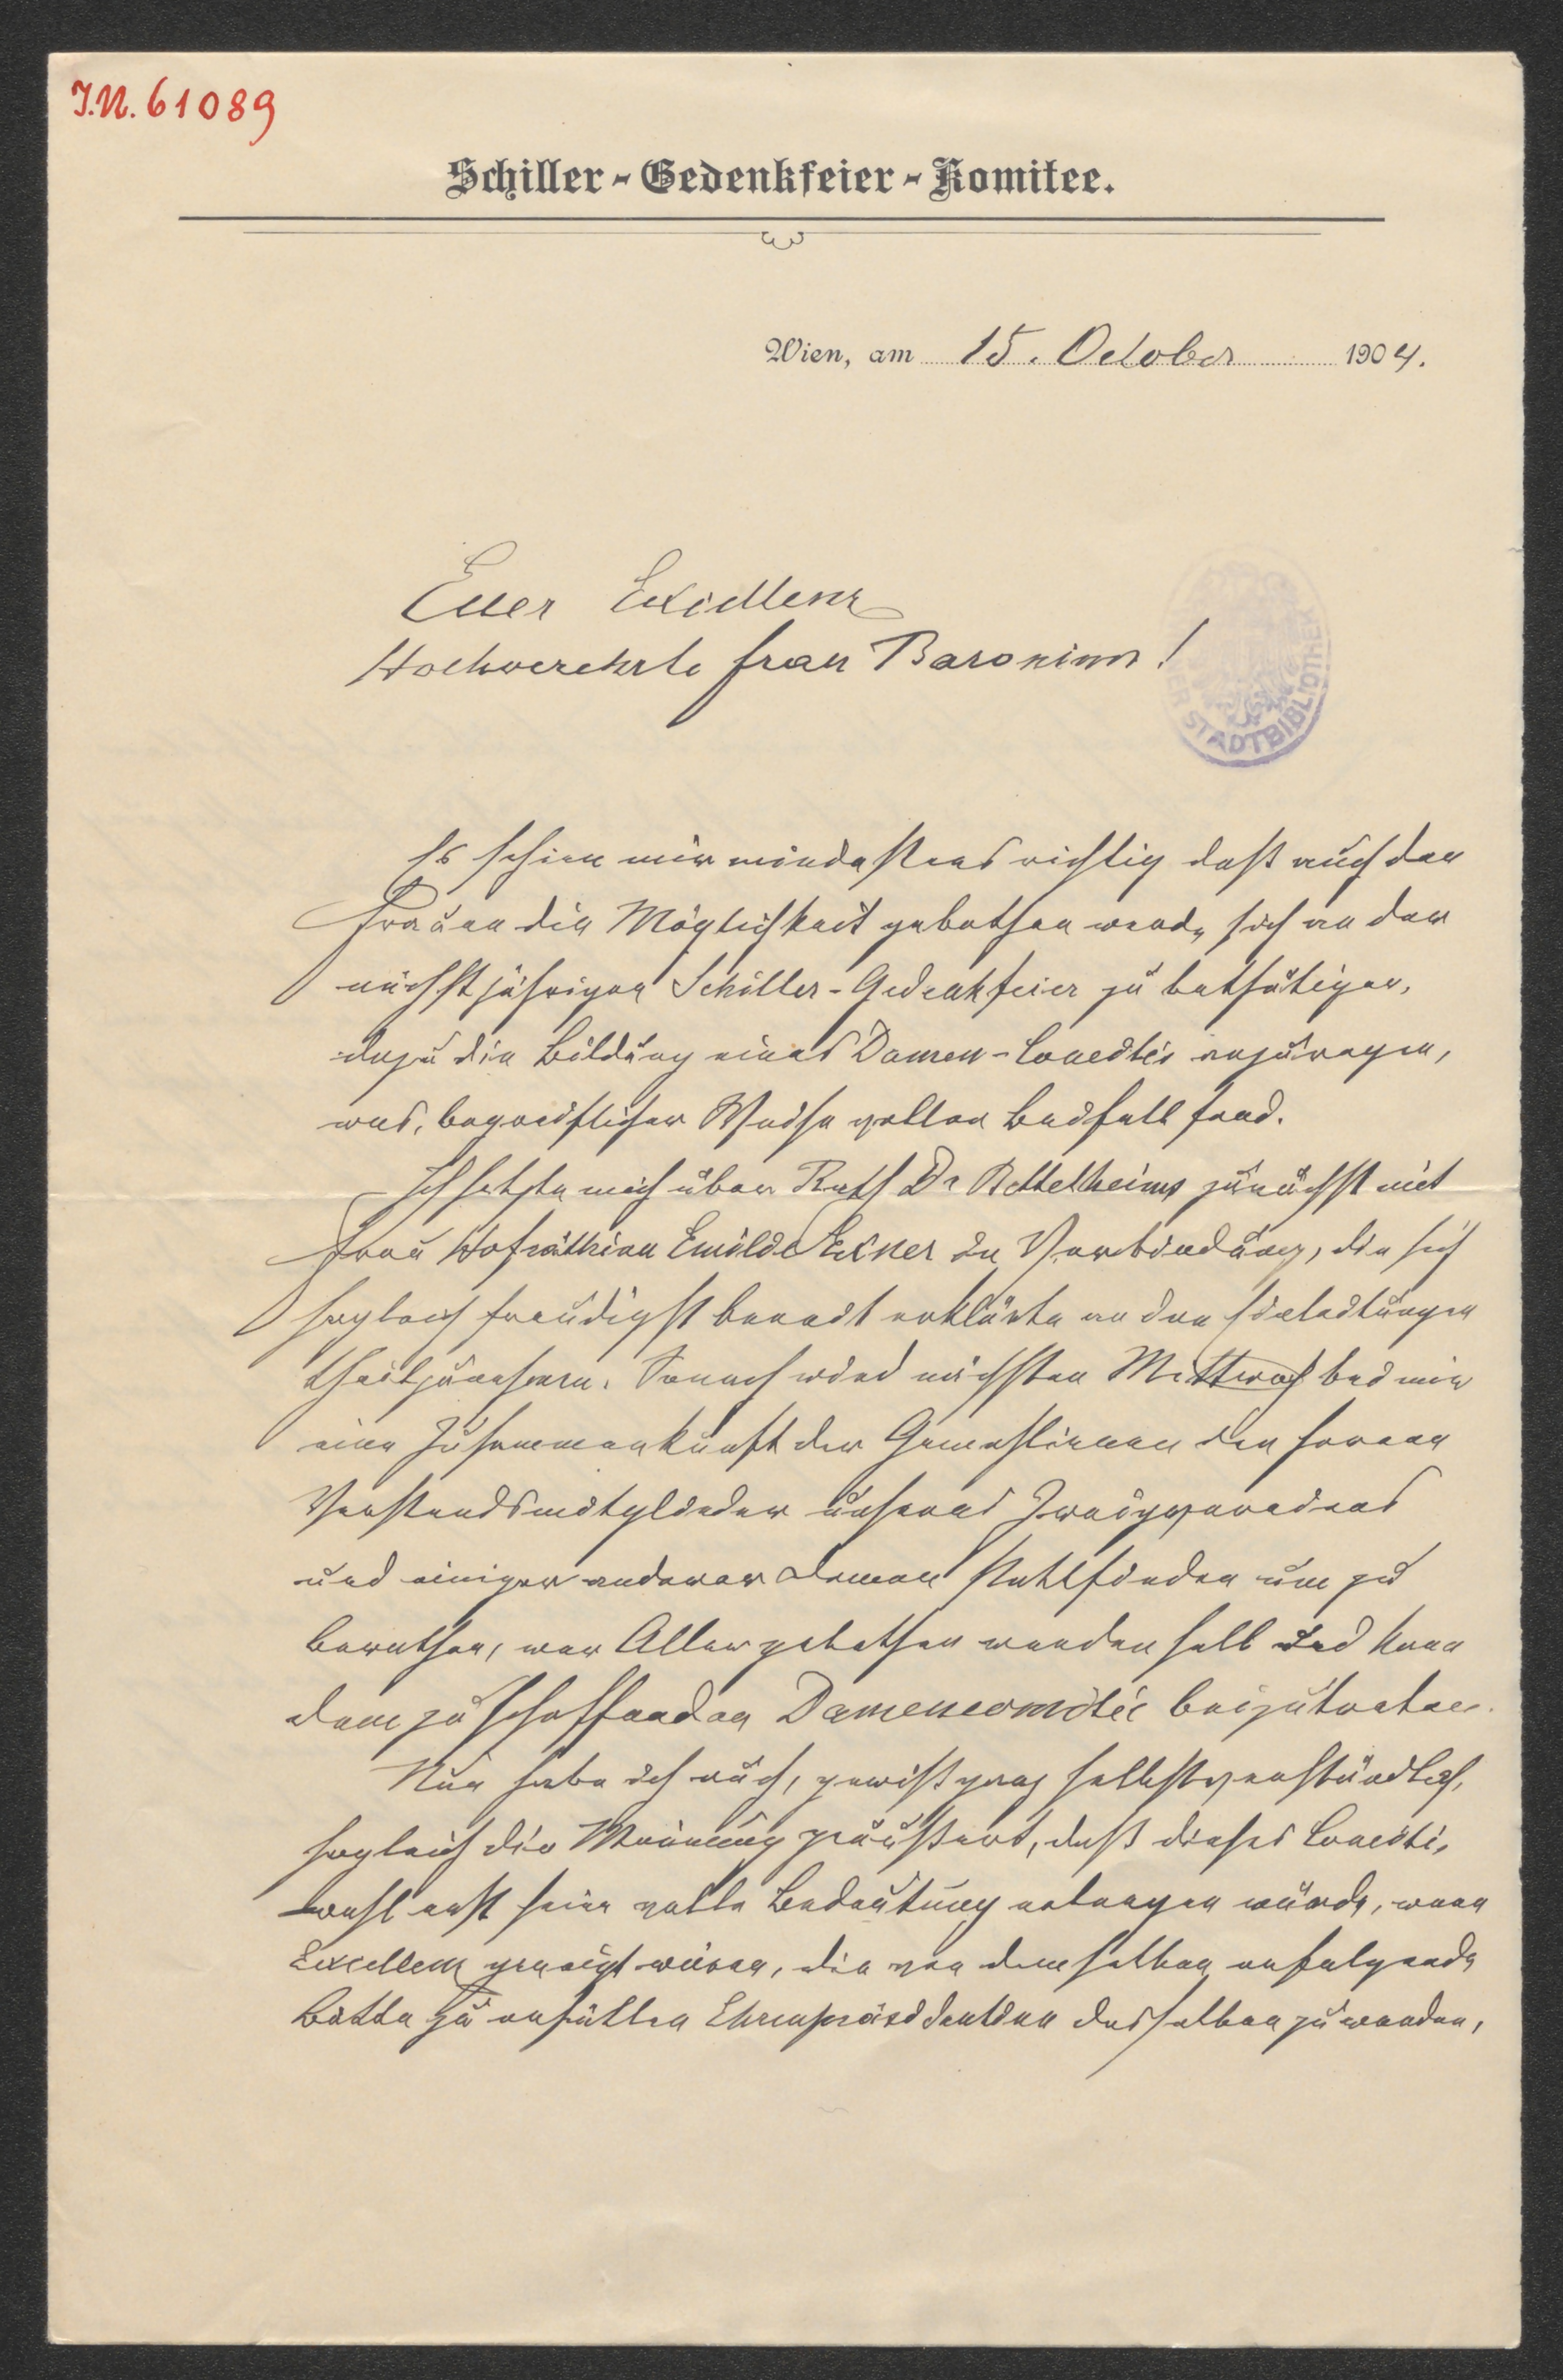 I.N. 61089
Schiller-Gedenkfeier-Komitee.
Wien, am 15. October 1904.
Euer Excellenz
Hochverehrte Frau Baronin!
STADTBIBLIOTHEK
Es schien mir mindestens richtig daß auch den
Frauen die Möglichkeit gebothen werde, sich an der
nächstjährigen Schiller-Gedenkfeier zu bethätigen,
dazu die Bildung eines Damen-Comités anzuregen,
was, begreiflicher Weise vollen Beifall fand.
Ich setzte mich über Rath Dr Bettelheims zunächst mit
Frau Hofräthinn Emilde Exner in Verbindung, die sich
sogleich freudigst bereit erklärte an den Einleitungen
theilzunehmen. Sonach wird nächsten Mittwoch bei mir
eine Zusammenkunft der Gemahlinnen der Herren
Vorstandsmitglieder unseres Zweigvereines
und einiger anderer Damen stattfinden um zu
berathen, wer Aller gebethen werden soll und kann
dem zu schaffenden Damencomitée beizutreten.
Nun habe ich auch, gewiß ganz selbstverständlich,
sogleich die Meinung geäußert, daß dieses Comité,
wohl erst seine volle Bedeutung erlangen würde, wenn
Excellenz geneigt wären, die von demselben erfolgende
Bitte zu erfüllen Ehrenpräsidentinn desselben zu werden,